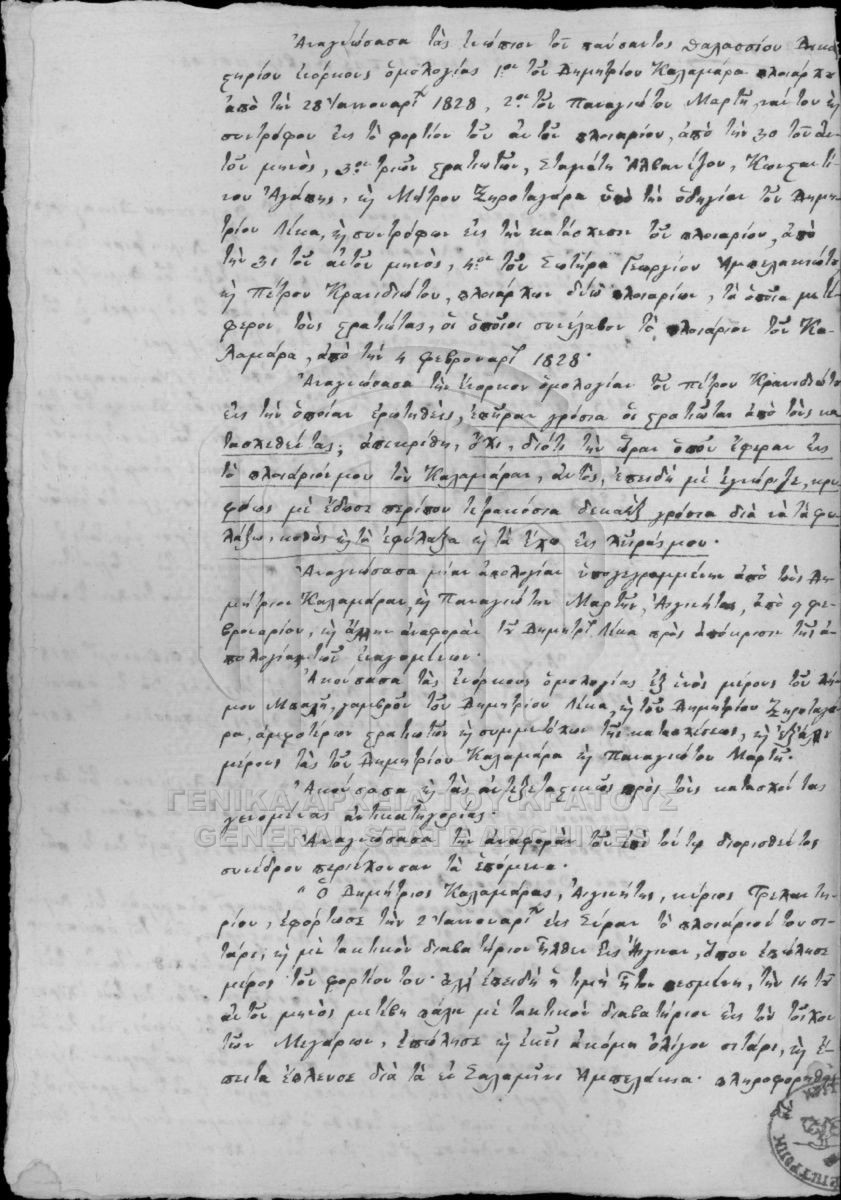 Ἀναγνώσασα τὰς ἐνώπιον τοῦ παύσαντος θαλασσίου Δικα
στηρίου ἐνόρκους ὁμολογίας 1ον τοῦ Δημητρίου Καλαμάρα πλοιάρχου
ἀπὸ τὴν 28 Ἰαννουαρίου 1828, 2ον τοῦ Παναγιώτου Μαρτῆ, ναύτου καὶ
συντρόφου εἰς τὸ φορτίον τοῦ αὐτοῦ πλοιαρίου, ἀπὸ τὴν 30 τοῦ αὐ-
τοῦ μηνὸς, 3ον τριῶν στρατιωτῶν, Σταμάτη Ἀλβανίτζου, Κωνσταντί-
νου Ἀγάπης, καὶ Μήτρου Ξηροταγάρα ὑπὸ τὴν ὁδηγίαν τοῦ Δημη-
τρίου Λέκα, καὶ συντρόφων εἰς τὴν κατάσχεσιν τοῦ πλοιαρίου, ἀπὸ
τὴν 31 τοῦ αὐτοῦ μηνὸς, 4ον τοῦ Σωτήρα Γεωργίου Ἀμπελακιώτου
καὶ Πέτρου Κρανιδιώτου, πλοιάρχων δύω πλοιαρίων, τὰ ὁποῖα μετέ
φερον τοὺς στρατιώτας, οἱ ὁποῖοι συνέλαβον τὸ πλοιάριον τοῦ Κα-
λαμάρα, ἀπὸ τὴν 4 Φεβρουαρίου 1828.
Ἀναγνώσασα τὴν ἔνορκον ὁμολογίαν τοῦ Πέτρου Κρανιδιώτου
εἰς τὴν ὁποίαν ἐρωτηθεὶς, ἐπῆραν γρόσια οἱ στρατιῶται ἀπὸ τοὺς κα
τασχεθέντας; ἀπεκρίθη, ὄχι, διότι τὴν ὥραν ὁποῦ ἔφεραν εἰς
τὸ πλοιάριόν μου τὸν Καλαμάραν, αὐτὸς, ἐπειδὴ μὲ ἐγνώριζε, κρυ
φίως μὲ ἔδωσε περίπου τετρακόσια δεκαὲξ γρόσια διὰ νὰ τὰ φυ
λάξω, καθὼς καὶ τὰ ἐφύλαξα καὶ τὰ ἔχω εἰς χεῖράς μου.
Ἀναγνώσασα μίαν ἀπολογίαν ὑπογεγραμμένην ἀπὸ τοὺς Δη
μήτριον Καλαμάραν, καὶ Παναγιώτην Μαρτῆν, Αἰγινήτας, ἀπὸ 9 Φε
βρουαρίου, καὶ ἄλλην ἀναφορὰν τοῦ Δημητρίου Λέκα πρὸς ἀπόκρισιν τῆς ἀ-
πολογίας τῶν ἐναγομένων.
Ἀκούσασα τὰς ἐνόρκους ὁμολογίας ἐξ ἑνὸς μέρους τοῦ
μου Μπαλῆ, γαμβροῦ τοῦ Δημητρίου Λέκα, καὶ τοῦ Δημητρίου Ξηροταγά
ρα, ἀμφοτέρων στρατιωτῶν καὶ συμμετόχων τῆς κατασχέσεως, καὶ ἐξ ἄλλου
μέρους τὰς τοῦ Δημητρίου Καλαμάρα καὶ Παναγιώτου Μαρτῆ.
Ἀκούσασα καὶ τὰς ἀντεξεταστικῶς πρὸς τοὺς κατασχόντας
γενομένας ἀντικατηγορίας.
ΓΕΝΙΚΑ ΑΡΧΕΙΑ ΤΟΥ ΚΡΑΤΟΥΣ
GENERAL STATE ARCHIVES
Ἀναγνώσασα τὴν ἀναφορὰν τοῦ ἐπὶ τούτῳ διορισθέντος
συνέδρου περιέχουσαν τὰ ἑπόμενα.
„ Ὁ Δημήτριος Καλαμάρας, Αἰγινήτης, κύριος Τρεχαντη-
ρίου, ἐφόρτωσε τὴν 2 Ἰαννουαρίου εἰς Σύραν τὸ πλοιάριόν του σι-
τάρι, καὶ μὲ τακτικὸν διαβατήριον ἦλθεν εἰς Αἴγιναν, ὅπου ἐπώλησε
μέρος τοῦ φορτίου του· ἀλλ' ἐπειδὴ ἡ τιμὴ ἦτον πεσμένη, τὴν 14 τοῦ
αὐτοῦ μηνὸς μετέβη πάλιν μὲ τακτικὸν διαβατήριον εἰς τὸν τοῖχον
τῶν Μεγάρων, ἐπώλησε καὶ ἐκεῖ ἀκόμη ὀλίγον σιτάρι, καὶ ἔ-
πειτα ἔπλευσε διὰ τὰ ἐν Σαλαμῖνι Ἀμπελάκια. πληροφορηθεὶς